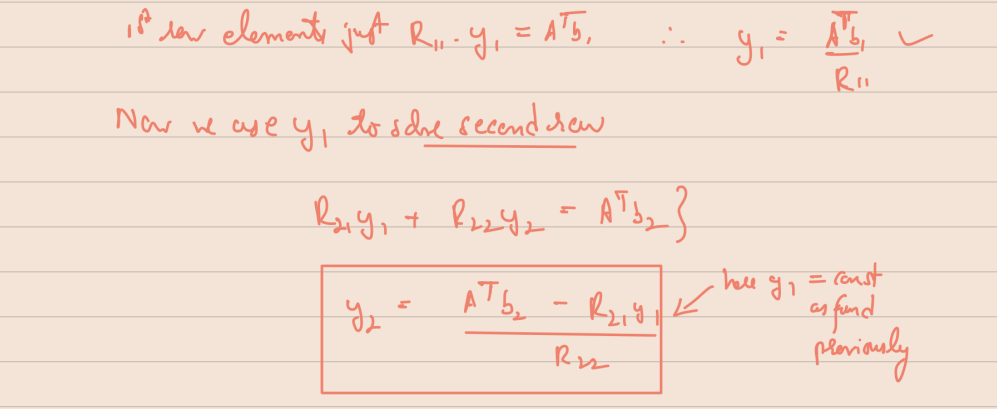 1st row elements just R₁₁ · y₁ = Aᵀb₁ ∴ y₁ = Aᵀb₁ / R₁₁ ✓
Now we use y₁ to solve second row
R₂₁y₁ + R₂₂y₂ = Aᵀb₂ }
y₂ = Aᵀb₂ − R₂₁y₁ / R₂₂
here y₁ = const
as found
previously